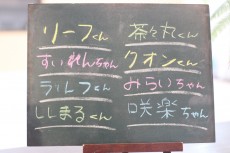 リーフくん
すいれんちゃん
ラルフくん
ししまるくん
茶々丸くん
クオンくん
みらいちゃん
咲楽ちゃん